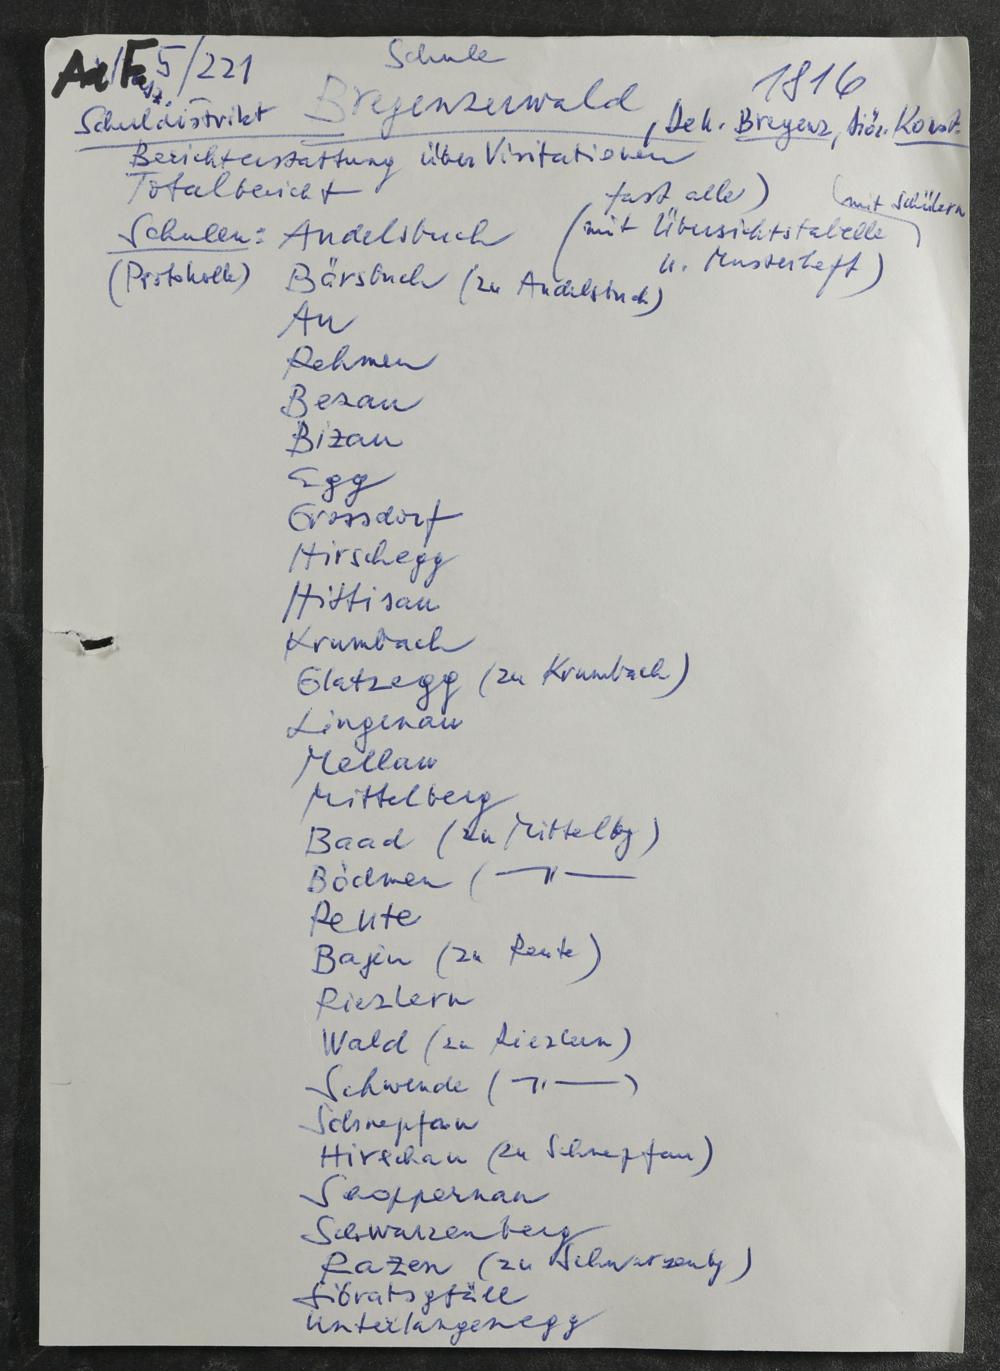 Fasz. 5/221
Schule
1816
Schuldistrikt Bregenzerwald, Dek. Bregenz, Diöz. Konst.
Berichterstattung über Visitationen
Totalbericht
fast alle)
(mit Schülern
Schulen: Andelsbuch (mit Übersichtstabelle
u. Musterheft)
(Protokolle) Bärsbuch (zu Andelsbuch)
Au
Rehmen
Bezau
Bizau
Egg
Grossdorf
Hirschegg
Hittisau
Krumbach
Glatzegg (zu Krumbach)
Lingenau
Mellau
Mittelberg
Baad (zu Mittelbg)
Bödmen (—"—
Reute
Bajen (zu Reute)
Riezlern
Wald (zu Riezlern)
Schwende (—"—)
Schnepfau
Hirschau (zu Schnepfau)
Schoppernau
Schwarzenberg
Razen (zu Schwarzenbg)
Sibratsgfäll
Unterlangenegg